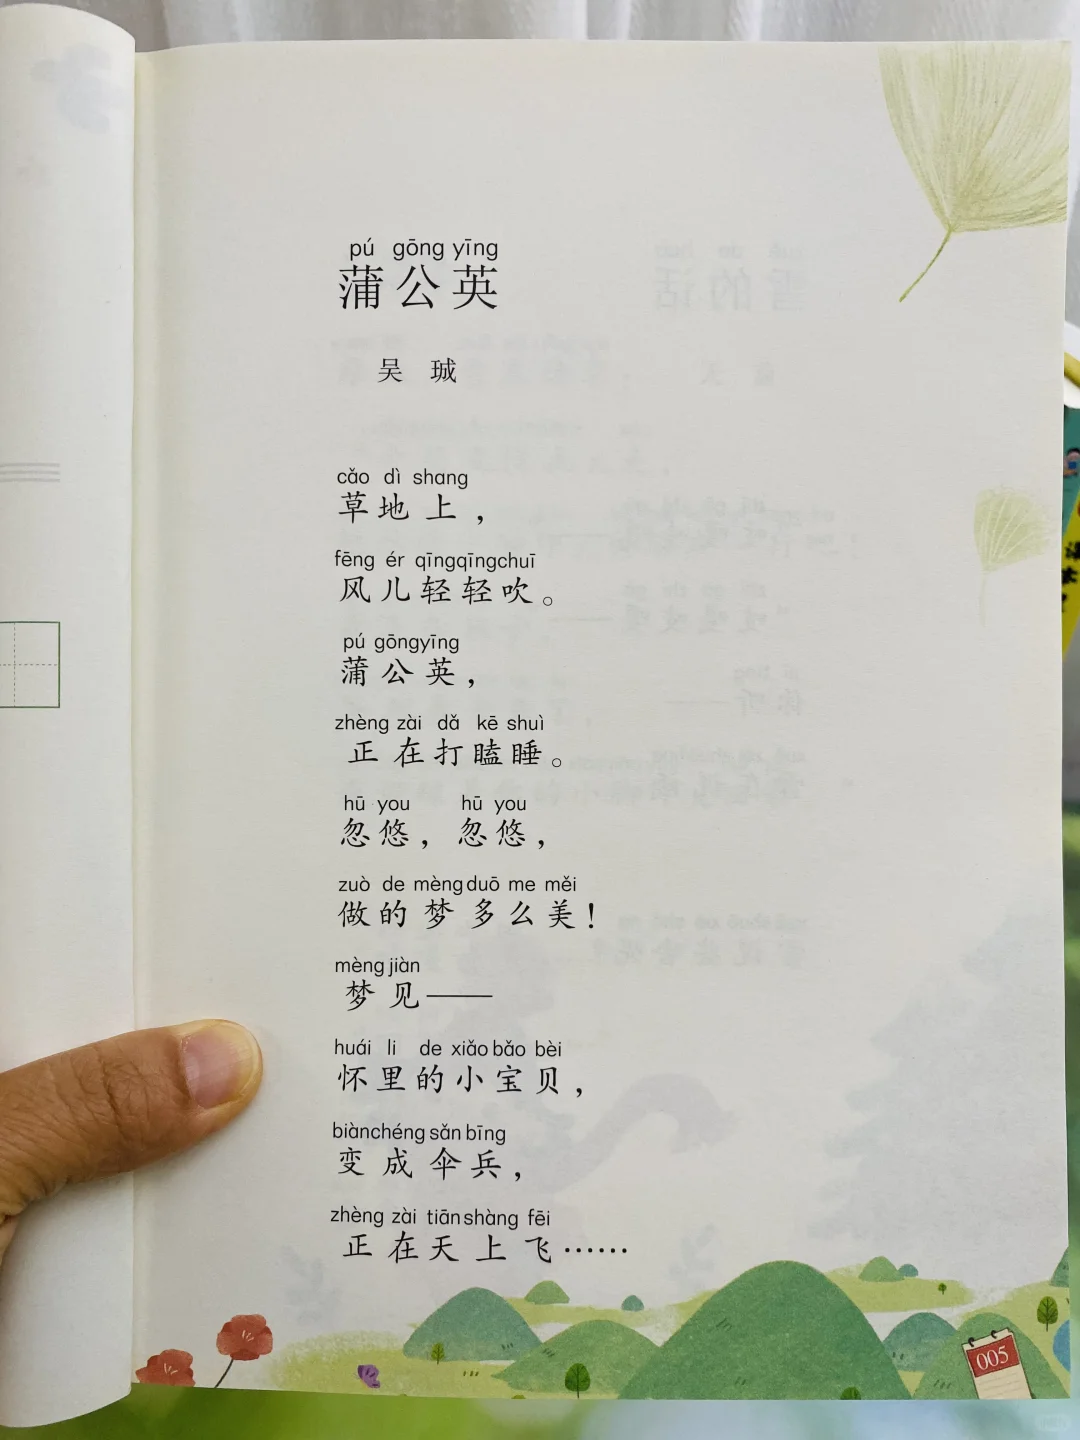 pú gōng yīng
蒲公英
吴 珹
cǎo dì shang
草地上，
fēng ér qīngqīngchuī
风儿轻轻吹。
pú gōngyīng
蒲公英，
zhèng zài dǎ kē shuì
正在打瞌睡。
hū you hū you
忽悠，忽悠，
zuò de mèng duō me měi
做的梦多么美！
mèng jiàn
梦见——
huái li de xiǎo bǎo bèi
怀里的小宝贝，
biànchéng sǎn bīng
变成伞兵，
zhèng zài tiān shàng fēi
正在天上飞……
005